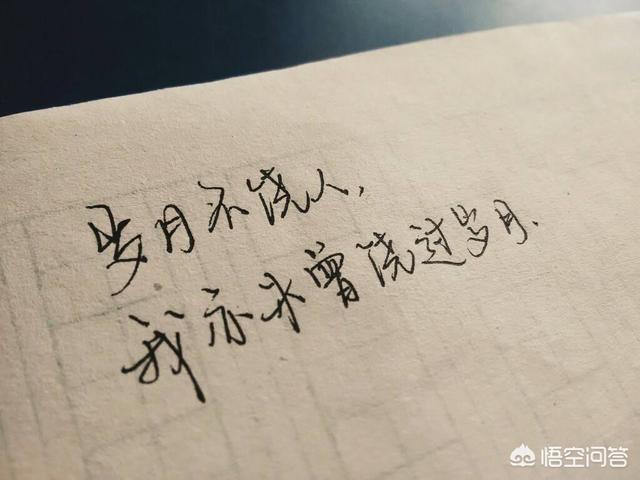 岁月不饶人,
我亦未曾饶过岁月.
悟空问答